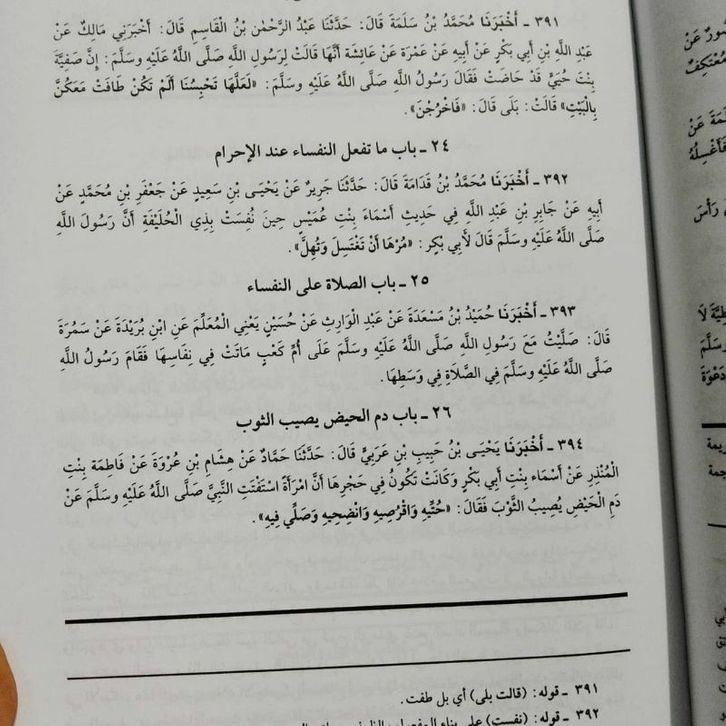 ٣٩١ ـ أَخْبَرَنَا مُحَمَّدُ بْنُ سَلَمَةَ قَالَ: حَدَّثَنَا عَبْدُ الرَّحْمٰنِ بْنُ الْقَاسِمِ قَالَ: أَخْبَرَنِي مَالِكٌ عَنْ
عَبْدِ اللَّهِ بْنِ أَبِي بَكْرٍ عَنْ أَبِيهِ عَنْ عَمْرَةَ عَنْ عَائِشَةَ أَنَّهَا قَالَتْ لِرَسُولِ اللَّهِ صَلَّى اللَّهُ عَلَيْهِ وَسَلَّمَ: إِنَّ صَفِيَّةَ
بِنْتَ حُيَيٍّ قَدْ حَاضَتْ فَقَالَ رَسُولُ اللَّهِ صَلَّى اللَّهُ عَلَيْهِ وَسَلَّمَ: «لَعَلَّهَا تَحْبِسُنَا أَلَمْ تَكُنْ طَافَتْ مَعَكُنَّ
بِالْبَيْتِ» قَالَتْ: بَلَى قَالَ: «فَاخْرُجْنَ».
٢٤ ـ باب ما تفعل النفساء عند الإحرام
٣٩٢ ـ أَخْبَرَنَا مُحَمَّدُ بْنُ قُدَامَةَ قَالَ: حَدَّثَنَا جَرِيرٌ عَنْ يَحْيَى بْنِ سَعِيدٍ عَنْ جَعْفَرِ بْنِ مُحَمَّدٍ عَنْ
أَبِيهِ عَنْ جَابِرِ بْنِ عَبْدِ اللَّهِ فِي حَدِيثِ أَسْمَاءَ بِنْتِ عُمَيْسٍ حِينَ نُفِسَتْ بِذِي الْحُلَيْفَةِ أَنَّ رَسُولَ اللَّهِ
صَلَّى اللَّهُ عَلَيْهِ وَسَلَّمَ قَالَ لِأَبِي بَكْرٍ: «مُرْهَا أَنْ تَغْتَسِلَ وَتُهِلَّ».
٢٥ ـ باب الصلاة على النفساء
٣٩٣ ـ أَخْبَرَنَا حُمَيْدُ بْنُ مَسْعَدَةَ عَنْ عَبْدِ الْوَارِثِ عَنْ حُسَيْنٍ يَعْنِي الْمُعَلِّمَ عَنِ ابْنِ بُرَيْدَةَ عَنْ سَمُرَةَ
قَالَ: صَلَّيْتُ مَعَ رَسُولِ اللَّهِ صَلَّى اللَّهُ عَلَيْهِ وَسَلَّمَ عَلَى أُمِّ كَعْبٍ مَاتَتْ فِي نِفَاسِهَا فَقَامَ رَسُولُ اللَّهِ
صَلَّى اللَّهُ عَلَيْهِ وَسَلَّمَ فِي الصَّلَاةِ فِي وَسَطِهَا.
٢٦ ـ باب دم الحيض يصيب الثوب
٣٩٤ ـ أَخْبَرَنَا يَحْيَى بْنُ حَبِيبِ بْنِ عَرَبِيٍّ قَالَ: حَدَّثَنَا حَمَّادٌ عَنْ هِشَامِ بْنِ عُرْوَةَ عَنْ فَاطِمَةَ بِنْتِ
الْمُنْذِرِ عَنْ أَسْمَاءَ بِنْتِ أَبِي بَكْرٍ وَكَانَتْ تَكُونُ فِي حَجْرِهَا أَنَّ امْرَأَةً اسْتَفْتَتِ النَّبِيَّ صَلَّى اللَّهُ عَلَيْهِ وَسَلَّمَ عَنْ
دَمِ الْحَيْضِ يُصِيبُ الثَّوْبَ فَقَالَ: «حُتِّيهِ وَاقْرُصِيهِ وَانْضِحِيهِ وَصَلِّي فِيهِ».
٣٩١ ـ قوله: (قالت بلى) أي بل طفت.
٣٩٢ ـ قوله: (نفست) على بناء المفعول